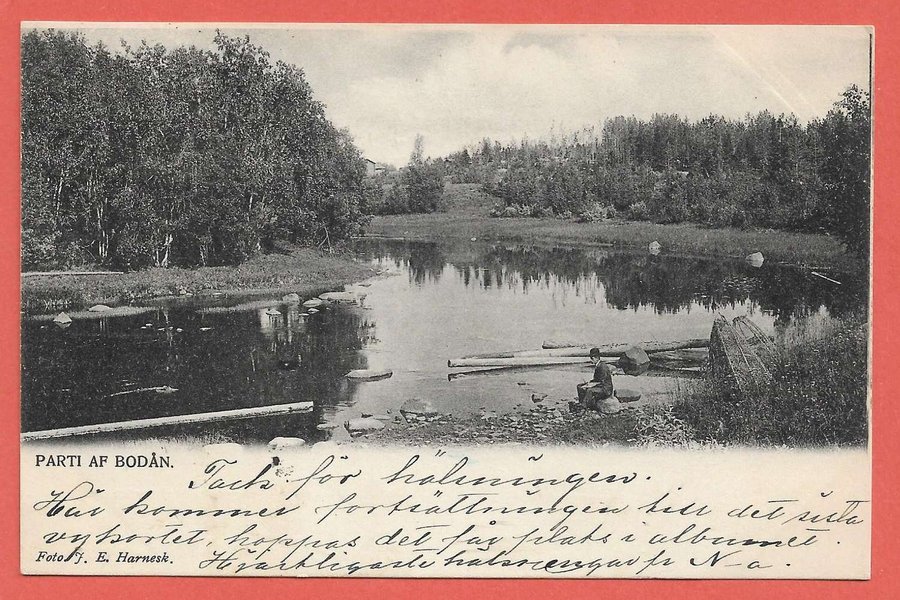 PARTI AF BODÅN.
Tack för hälsningen.
Här kommer fortsättningen till det sista
vykortet, hoppas det får plats i albumet.
Foto J. E. Harnesk.
Hjärtligaste hälsningar fr N-a.